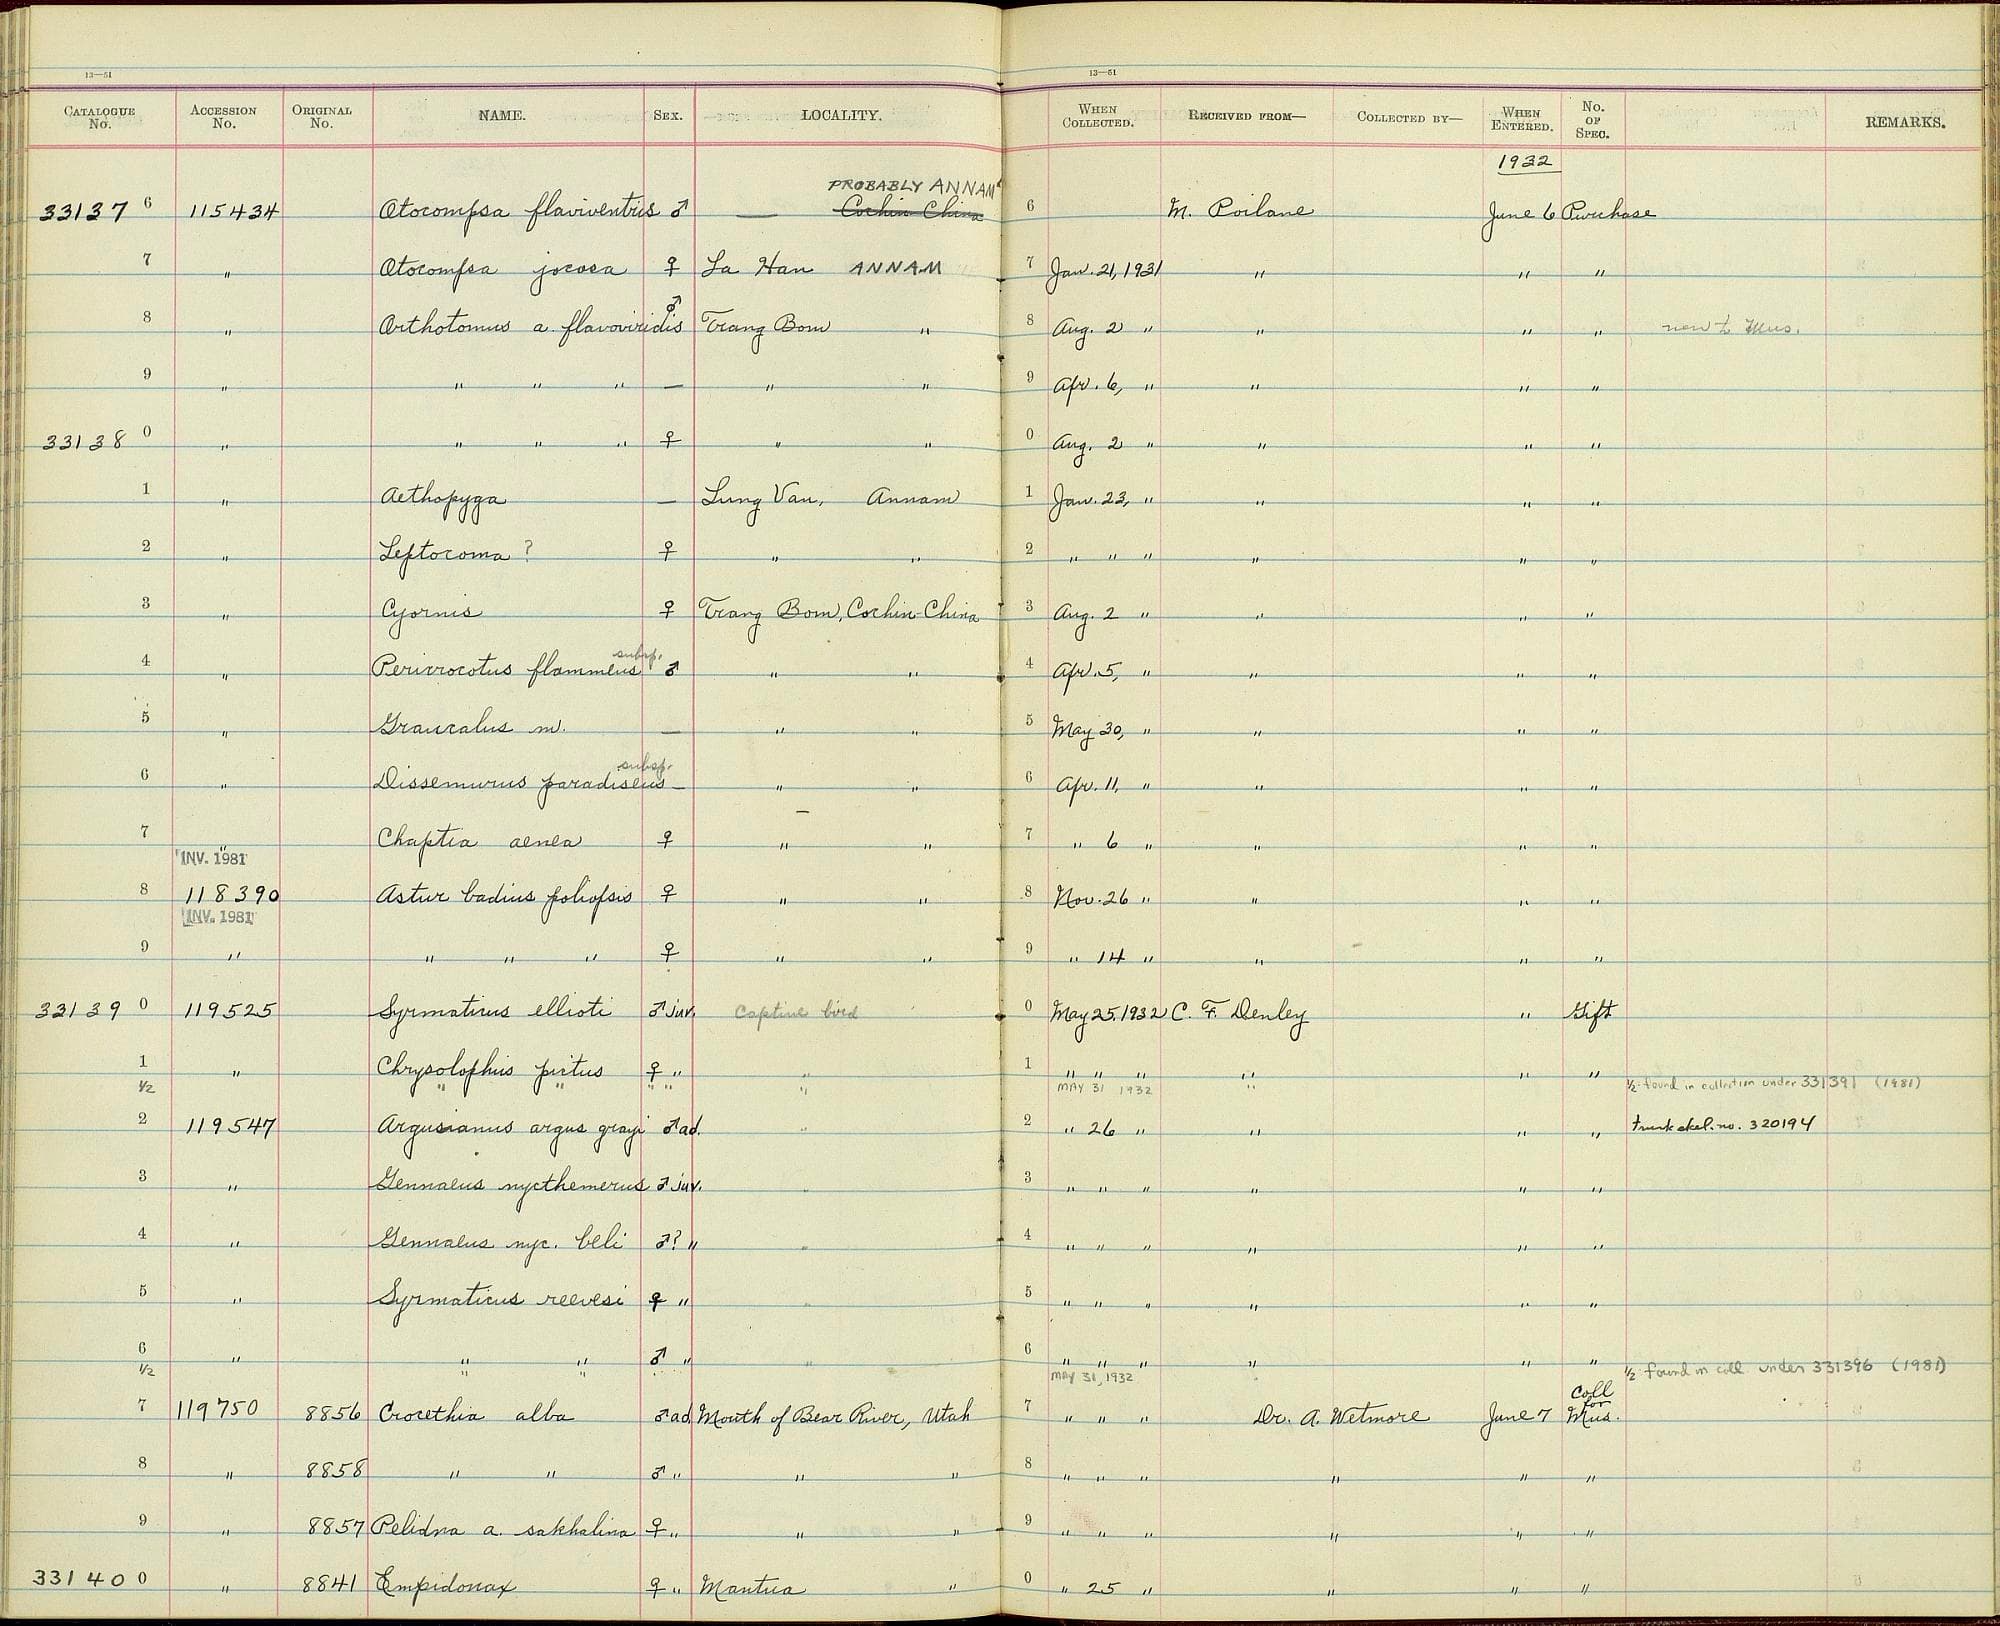 13—51 13—51
CATALOGUE No. ACCESSION No. ORIGINAL No. NAME. SEX. LOCALITY. WHEN COLLECTED. RECEIVED FROM— COLLECTED BY— WHEN ENTERED. No. OF SPEC. REMARKS.
1932
PROBABLY ANNAM
33137 6 115434 Otocompsa flaviventris ♂ — Cochin China 6 M. Poilane June 6 Purchase
7 " Otocompsa jocosa ♀ La Han ANNAM 7 Jan. 21, 1931 " " "
8 " Orthotomus a. flavoviridis ♂ Trang Bom " 8 Aug. 2 " " " " new to Mus.
9 " " " " — " " 9 Apr. 6, " " " "
33138 0 " " " " ♀ " " 0 Aug. 2 " " " "
1 " Aethopyga — Lung Van, Annam 1 Jan. 23, " " " "
2 " Leptocoma ? ♀ " " 2 " " " " " "
3 " Cyornis ♀ Trang Bom, Cochin-China 3 Aug. 2 " " " "
4 " Pericrocotus flammeus subsp. ♂ " " 4 Apr. 5, " " " "
5 " Graucalus m. — " " 5 May 30, " " " "
6 " Dissemurus paradiseus subsp. — " " 6 Apr. 11, " " " "
7 " Chaptia aenea ♀ " " 7 " 6 " " " "
INV. 1981
8 118390 Astur badius poliopsis ♀ " " 8 Nov. 26 " " " "
INV. 1981
9 " " " " ♀ " " 9 " 14 " " " "
33139 0 119525 Syrmaticus ellioti ♂ juv. Captive bird 0 May 25, 1932 C. F. Denley " Gift
1 " Chrysolophus pictus ♀ " " 1 " " " " " "
1/2 " " " " " MAY 31 1932 " 1/2 found in collection under 331391 (1981)
2 119547 Argusianus argus grayi ♂ ad. " 2 " 26 " " " " trunk skel. no. 320194
3 " Gennaeus nycthemerus ♂ juv. " 3 " " " " " "
4 " Gennaeus nyc. beli ♂? " " 4 " " " " " "
5 " Syrmaticus reevesi ♀ " " 5 " " " " " "
6 " " " ♂ " " 6 " " " " " "
1/2 " " MAY 31, 1932 1/2 found in coll under 331396 (1981)
7 119750 8856 Crocethia alba ♂ ad. Mouth of Bear River, Utah 7 " " " Dr. A. Wetmore June 7 Coll for Mus.
8 " 8858 " " ♂ " " " 8 " " " " " "
9 " 8857 Pelidna a. sakhalina ♀ " " " 9 " " " " " "
33140 0 " 8841 Empidonax ♀ " Mantua " 0 " 25 " " " "